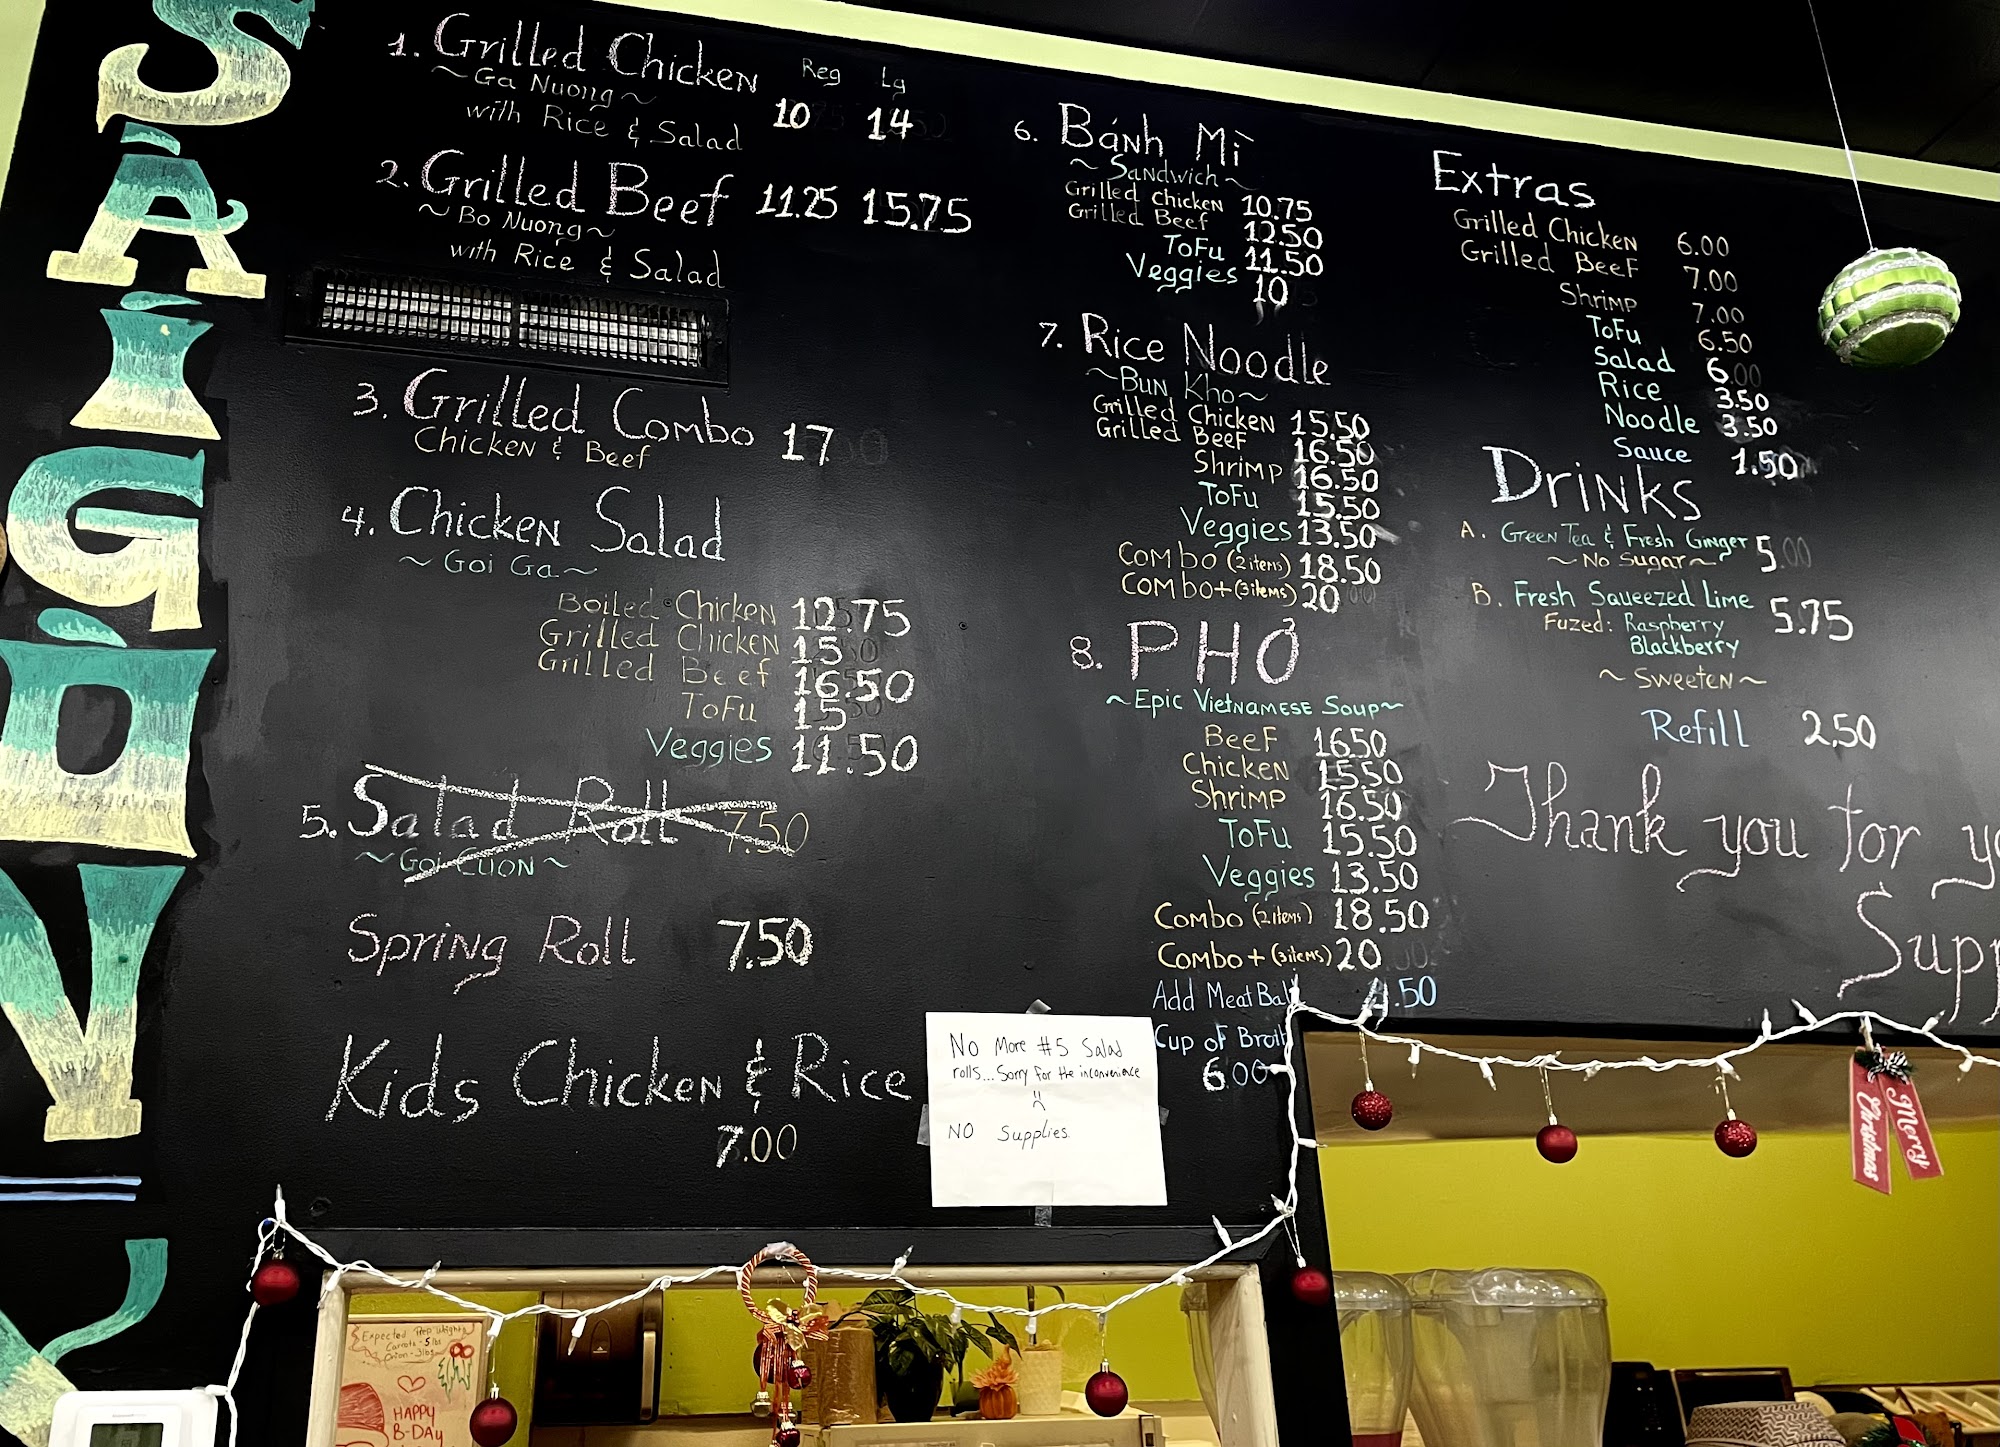 SÀIGÒN
1. Grilled Chicken Reg Lg
~ Ga Nuong ~ 10 14
with Rice & Salad
2. Grilled Beef 11.25 15.75
~ Bo Nuong ~
with Rice & Salad
3. Grilled Combo 17
Chicken & Beef
4. Chicken Salad
~ Goi Ga ~
Boiled Chicken 12.75
Grilled Chicken 15
Grilled Beef 16.50
ToFu 15
Veggies 11.50
5. Salad Roll 7.50
~ Goi Cuon ~
Spring Roll 7.50
Kids Chicken & Rice
7.00
No More #5 Salad
rolls... Sorry for the inconvenience
NO Supplies.
6. Bánh Mì
~ Sandwich ~
Grilled Chicken 10.75
Grilled Beef 12.50
ToFu 11.50
Veggies 10
7. Rice Noodle
~ Bun Kho ~
Grilled Chicken 15.50
Grilled Beef 16.50
Shrimp 16.50
ToFu 15.50
Veggies 13.50
Combo (2 items) 18.50
Combo+ (3 items) 20
8. PHỞ
~ Epic Vietnamese Soup ~
Beef 16.50
Chicken 15.50
Shrimp 16.50
ToFu 15.50
Veggies 13.50
Combo (2 items) 18.50
Combo + (3 items) 20
Add Meat Ball .50
Cup of Broth
6.00
Extras
Grilled Chicken 6.00
Grilled Beef 7.00
Shrimp 7.00
ToFu 6.50
Salad 6.00
Rice 3.50
Noodle 3.50
Sauce 1.50
Drinks
A. Green Tea & Fresh Ginger 5.00
~ No Sugar ~
B. Fresh Squeezed Lime 5.75
Fuzed: Raspberry
Blackberry
~ Sweeten ~
Refill 2.50
Thank you for yo
Supp
Merry
Christmas
Expected Prep Weight
Carrots - 5 lbs
Onion - 3 lbs
HAPPY
B-DAY